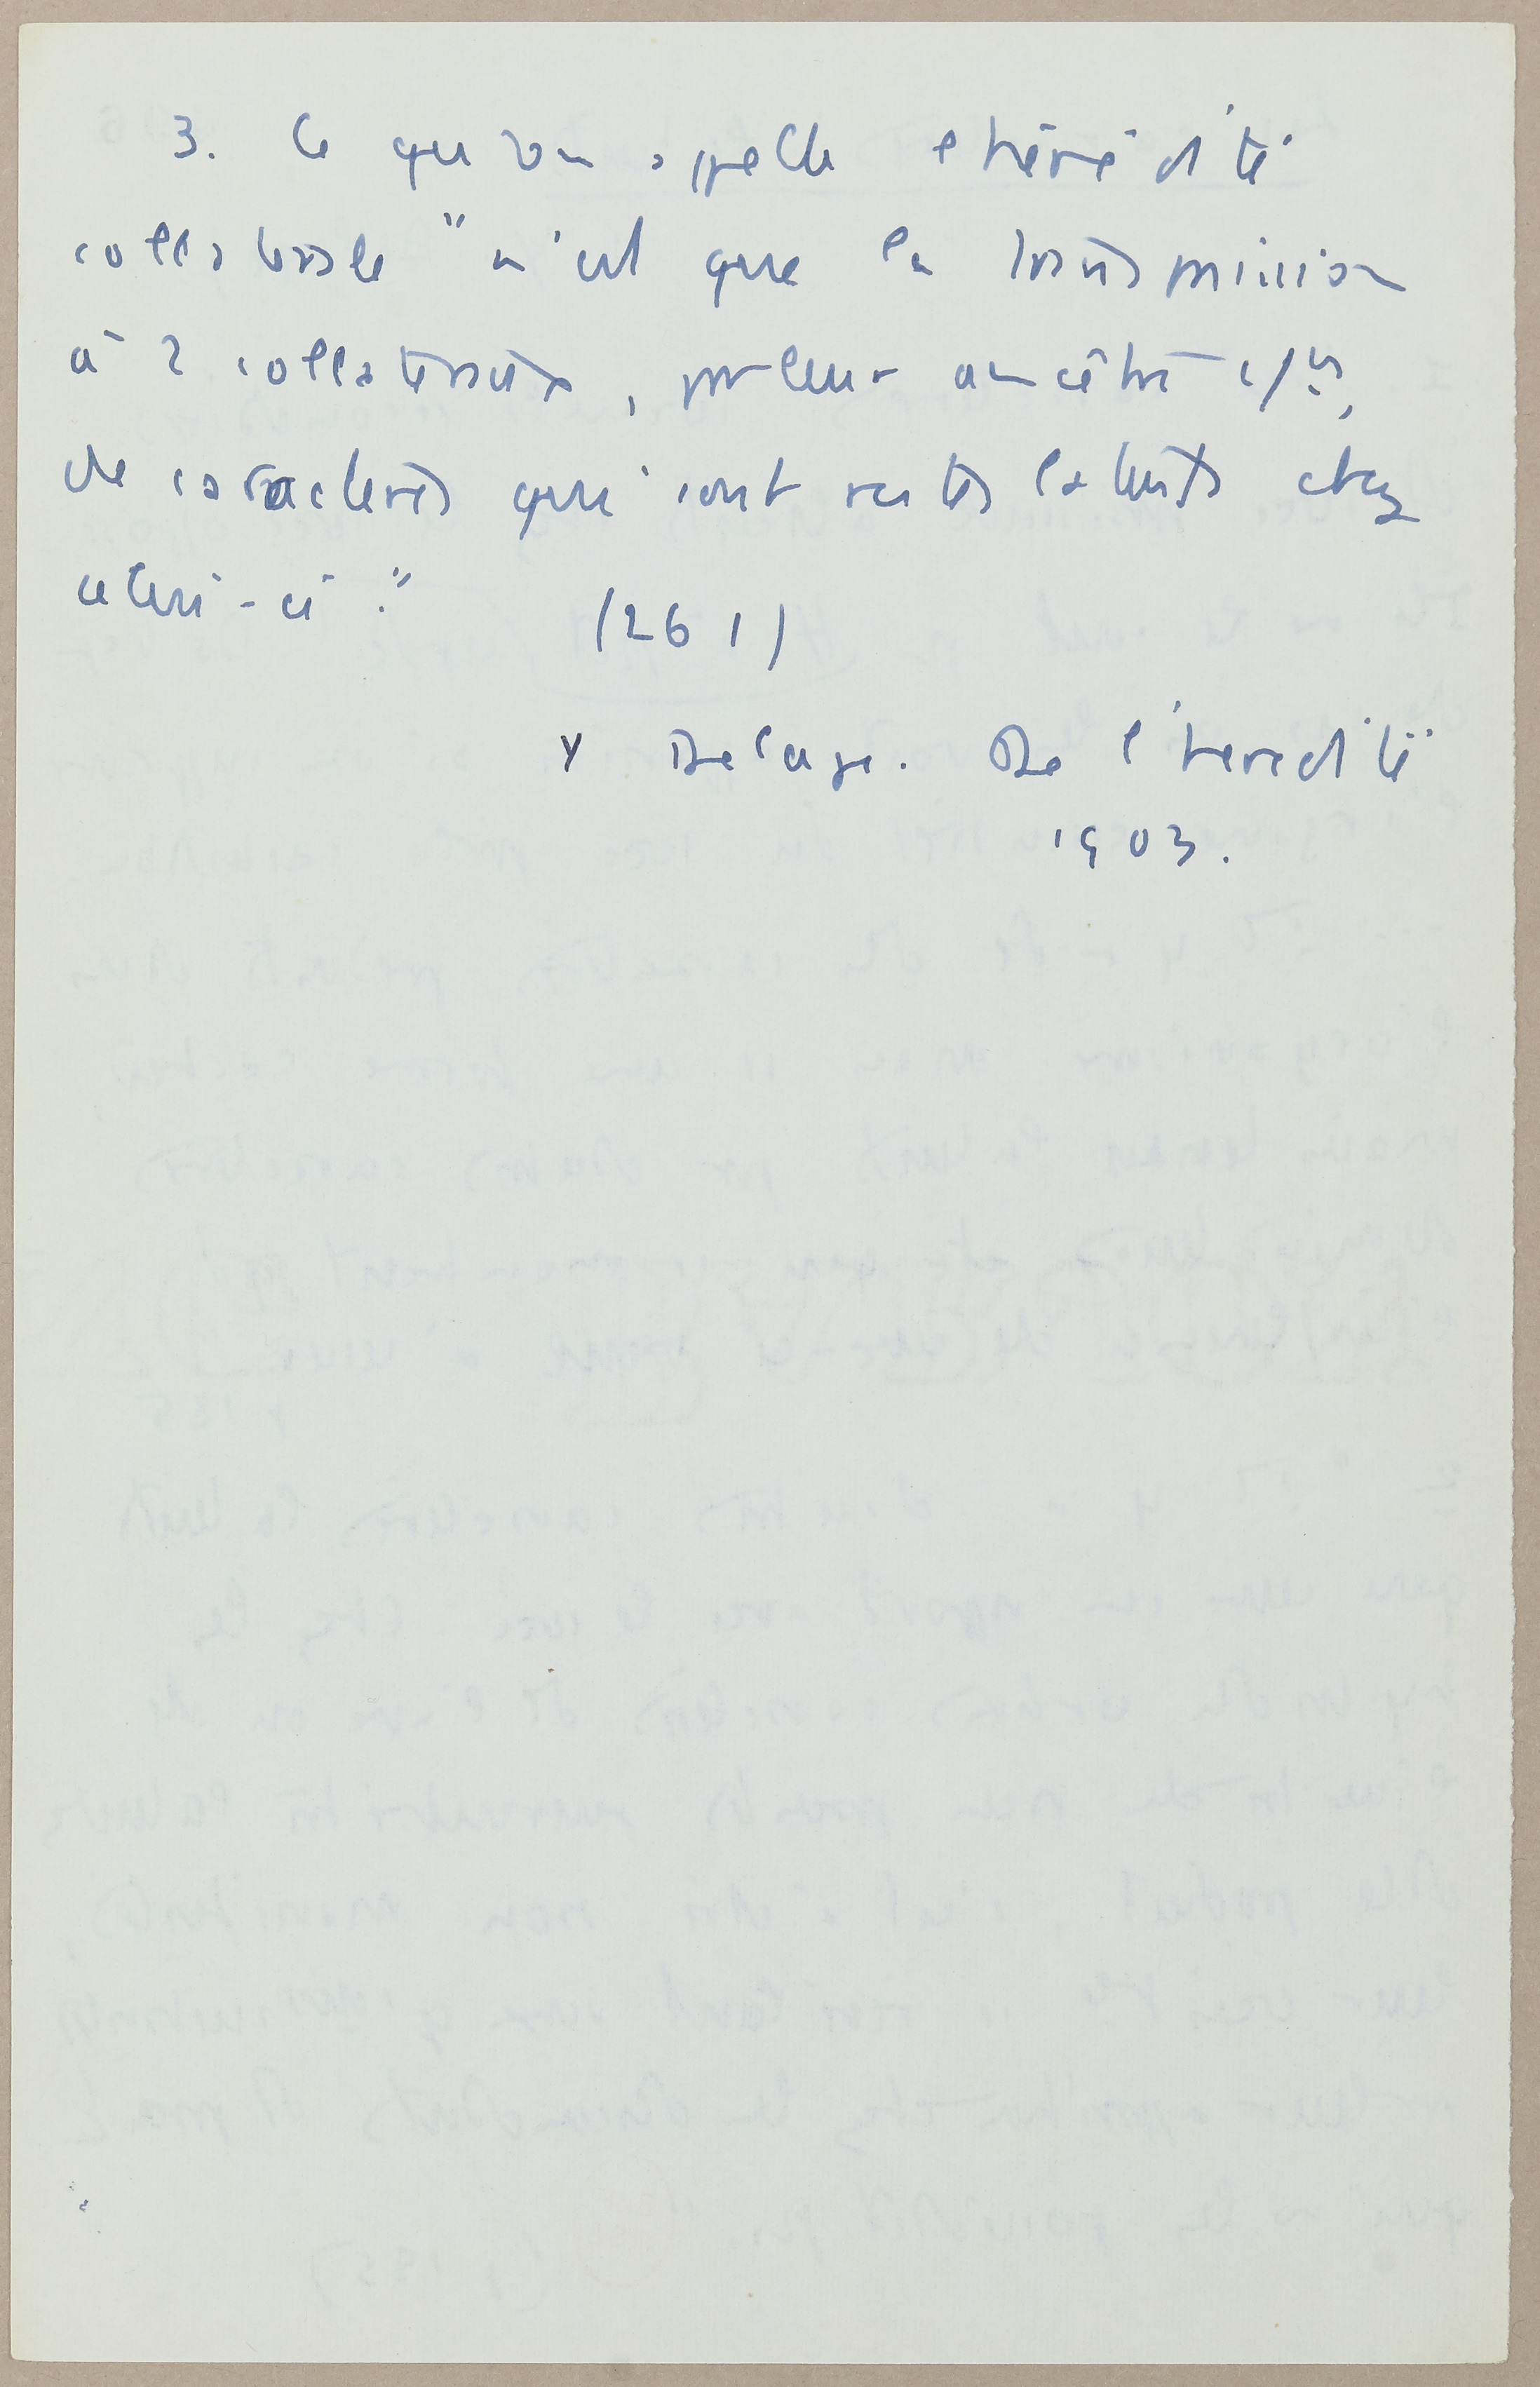 3. Ce que l'on appelle l'hérédité
collatérale" n'est que la transmission
à 2 collatéraux, par leur ancêtre
de caractères qui sont restés latents chez
celui-ci."
(261)
Y Delage. De l'heredité
1903.